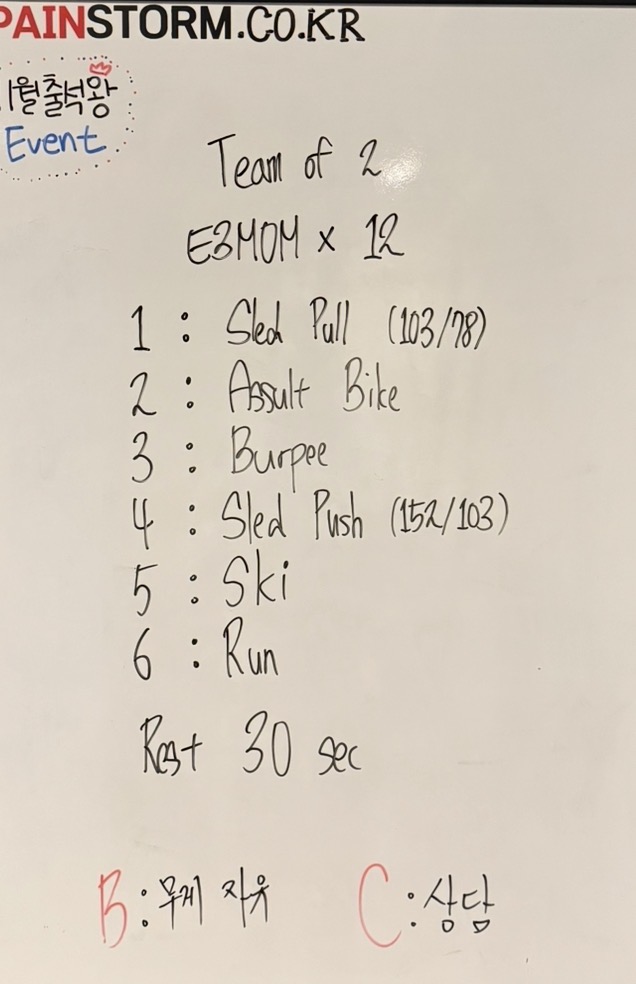 PAINSTORM.CO.KR
1월출석왕
Event
Team of 2
E3MOM x 12
1 : Sled Pull (103/78)
2 : Assult Bike
3 : Burpee
4 : Sled Push (152/103)
5 : Ski
6 : Run
Rest 30 sec
B : 무게 자유 C : 상담